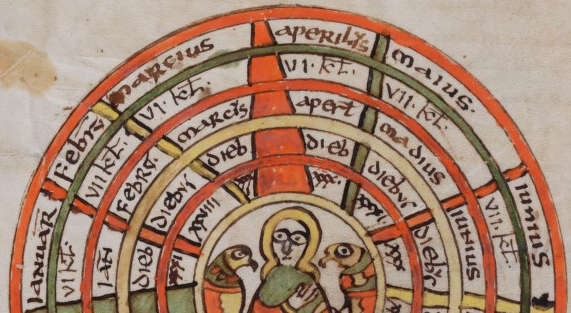 IANUAR Febrs marcius aperilis maius. iunius
VI kł. VII kł. VI kł. VI kł. VII kł. VII kł.
IAN Febrr marcis aperł madius iunius
dieb diebus dieb dieb diebus diebus
xxxi xxx